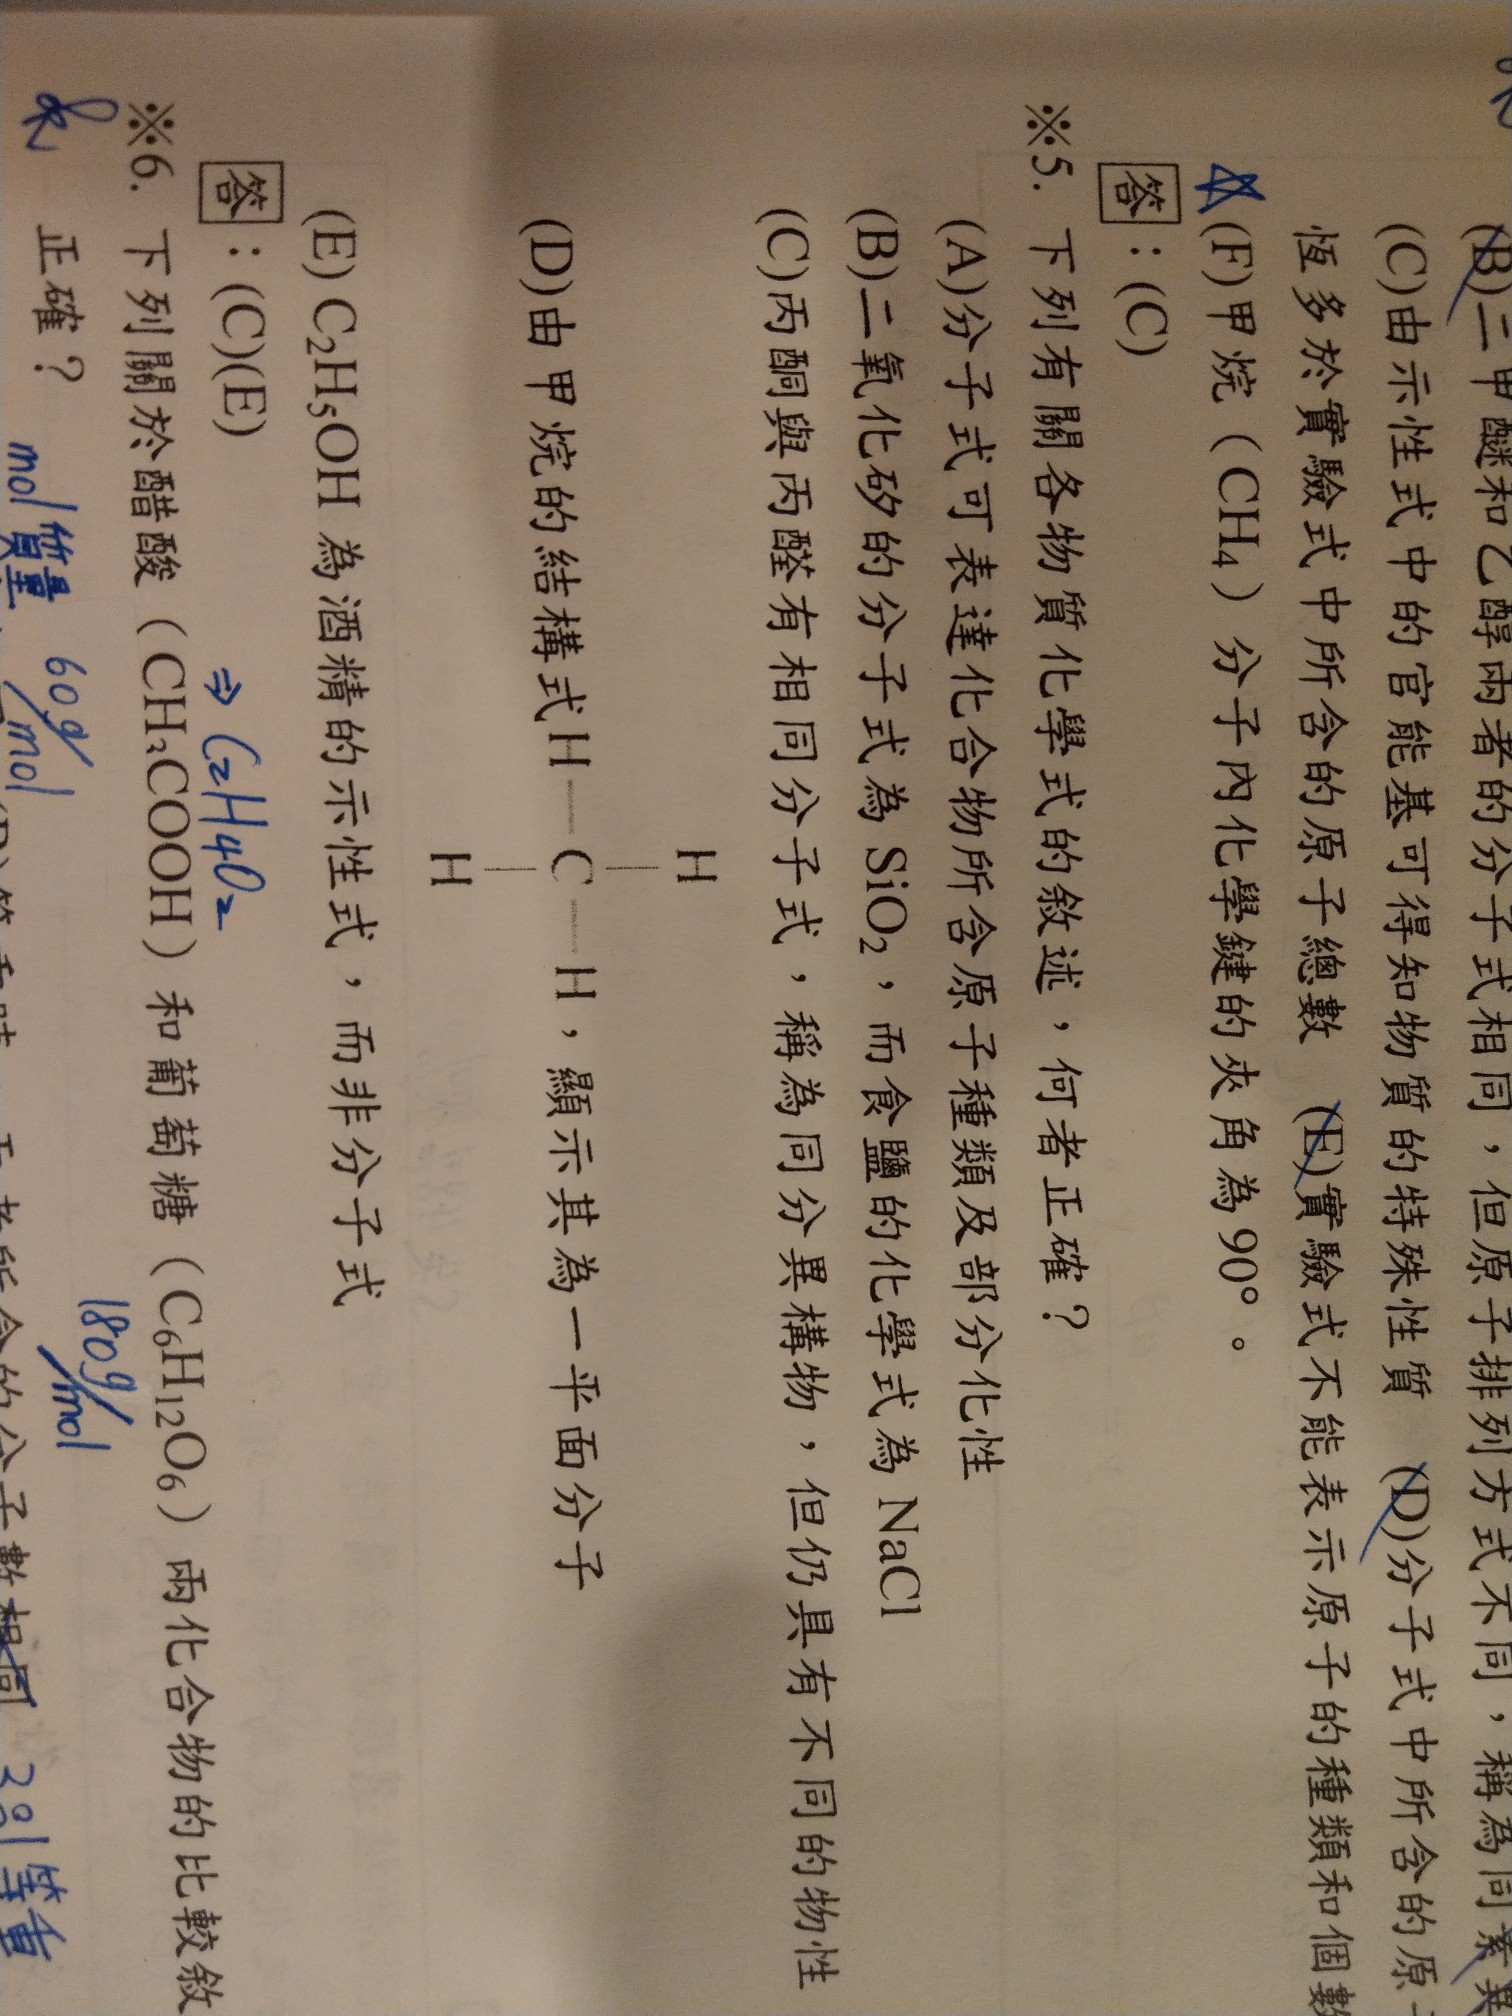 (B)二甲醚和乙醇兩者的分子式相同,但原子排列方式不同,稱為同素異
(C)由示性式中的官能基可得知物質的特殊性質 (D)分子式中所含的原
恆多於實驗式中所含的原子總數 (E)實驗式不能表示原子的種類和個數
(F)甲烷(CH₄)分子內化學鍵的夾角為90°。
答:(C)
※5. 下列有關各物質化學式的敘述,何者正確?
(A)分子式可表達化合物所含原子種類及部分化性
(B)二氧化矽的分子式為 SiO₂,而食鹽的化學式為 NaCl
(C)丙酮與丙醛有相同分子式,稱為同分異構物,但仍具有不同的物性
H
(D)由甲烷的結構式 H—C—H,顯示其為一平面分子
H
(E) C₂H₅OH 為酒精的示性式,而非分子式
答:(C)(E)
⇒ C₂H₄O₂
※6. 下列關於醋酸(CH₃COOH)和葡萄糖(C₆H₁₂O₆)兩化合物的比較敘
180g/mol
正確?
mol質量 60g/mol
所含的分子數相同 等重